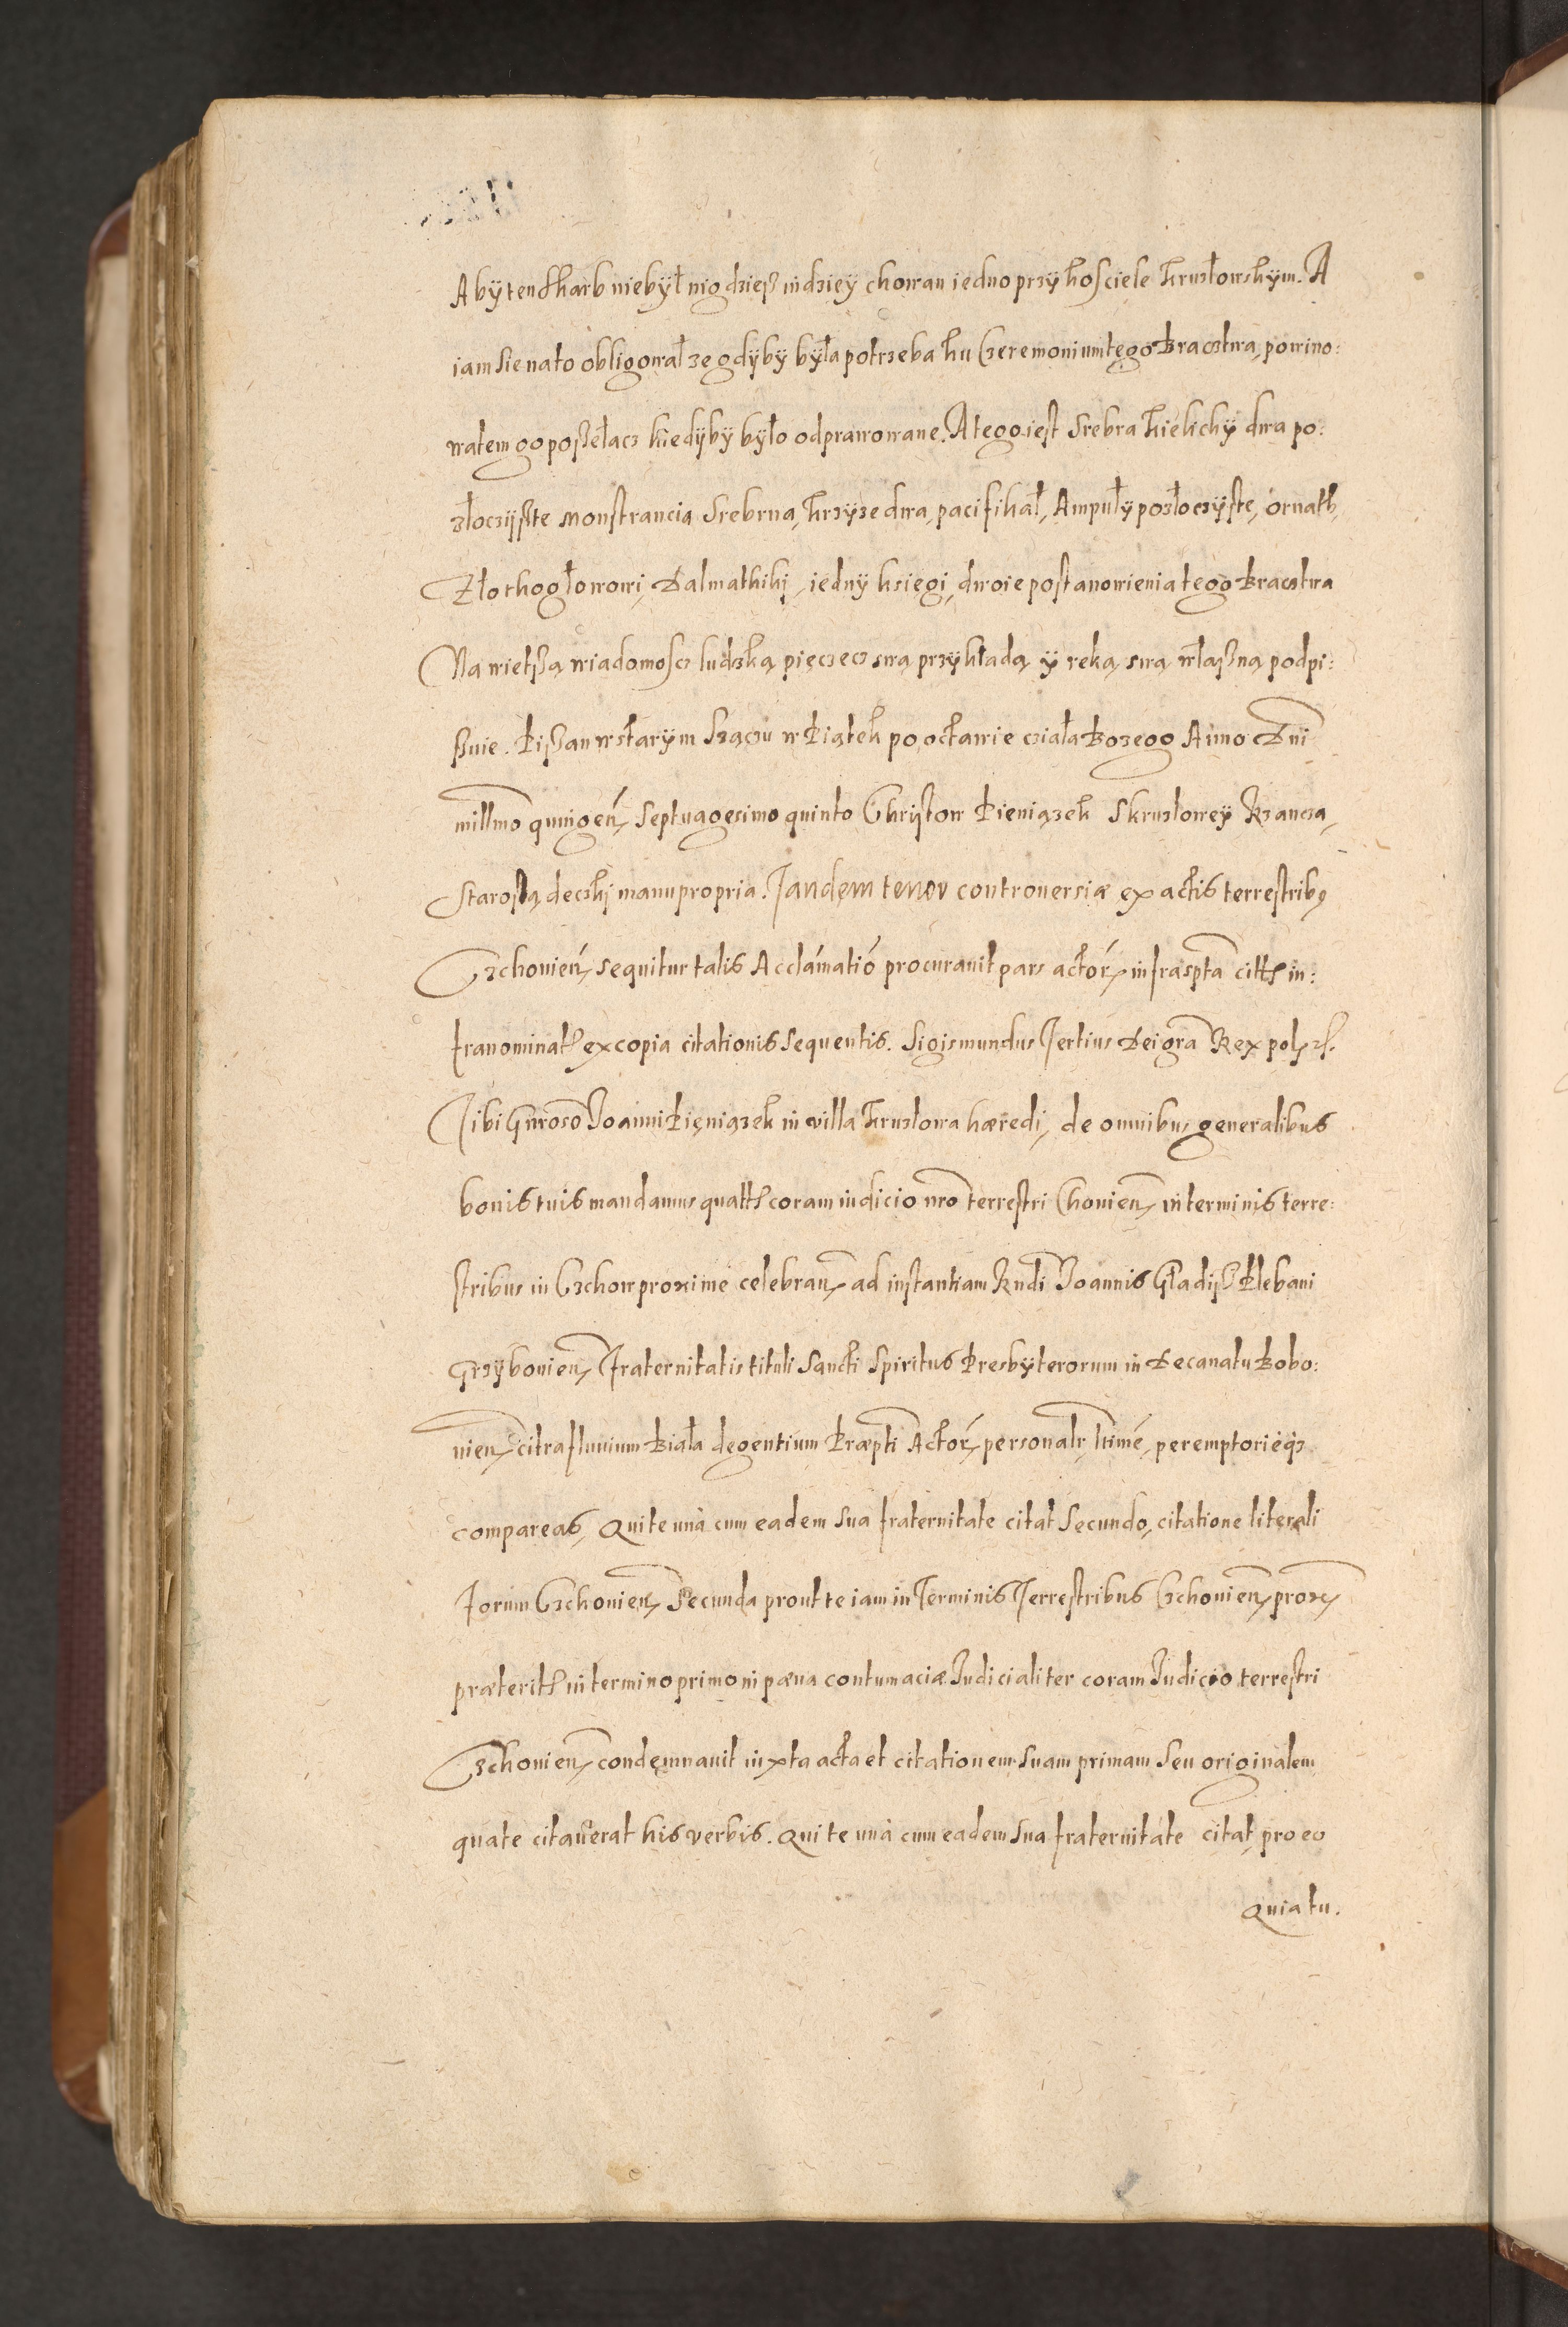 A bÿ ten skarb niebÿł nigdzieß indzieÿ chowan iedno przÿ kosciele kruzlowskÿm. A
iam sie na to obligował ze gdÿbÿ bÿła potrzeba ku Czeremonium tego Bractwa, powino:
watem go poßełacz kiedÿbÿ bÿło odprawowane. A tego iest srebra kielichÿ dwa po:
złoczÿste monstrancia srebrna, krzÿze dwa, pacifikał, Ampułÿ pozłoczÿste, ornath,
Złothogłowowi, Dalmathiki, iednÿ ksiegi, dwoie postanowienia tego Bractwa
Na wietßą wiadomoscz ludzką pięczecz swą przÿkładą ÿ reką swą właßną podpi:
ßuie. Pißan w starÿm Sączu w Piątek po octawie cziała Bozego Anno Dni
millmo quingen, septuagesimo quinto Chrÿstow Pieniązek Skruzloweÿ Rzancza,
Starosta deczki manu propria. Tandem tenor controversiæ ex actis terrestribꝯ
Czchovien, sequitur talis Acclámatió procuravit pars actor, infrascptã citte in:
franominate ex copia citationis sequentis. Sigismundus Tertius Dei gra Rex pol, etc.
Tibi Gnroso Joanni Pięniązek in villa Kruzlowa hæredi, de omnibus generalibus
bonis tuis mandamus quatte coram iudicio nro terrestri Chovien, in terminis terre:
stribus in Czchow proxime celebran, ad instantiam Rndi Joannis Gładiß Plebani
Grzÿbovien, fraternitatis tituli Sancti Spiritus Presbyterorum in Decanatu Bobo:
vien, citra fluvium Biała degentium Præpti Actor, personalr ltimé, peremptorieqꝫ
compareas, Qui te unà cum eadem sua fraternitate citat Secundo, citatione literali
forum Czchovien, Secunda prout te iam in Terminis Terrestribus Czchovien, prox,
præterite in termino primo in pæna contumaciæ Judicialiter coram Judicio terrestri
Czchovien, condemnavit iuxta acta et citationem suam primam seu originalem
qua te citaverat his verbis. Qui te unà cum eadem sua fraternitate citat, pro eo
Quia tu.